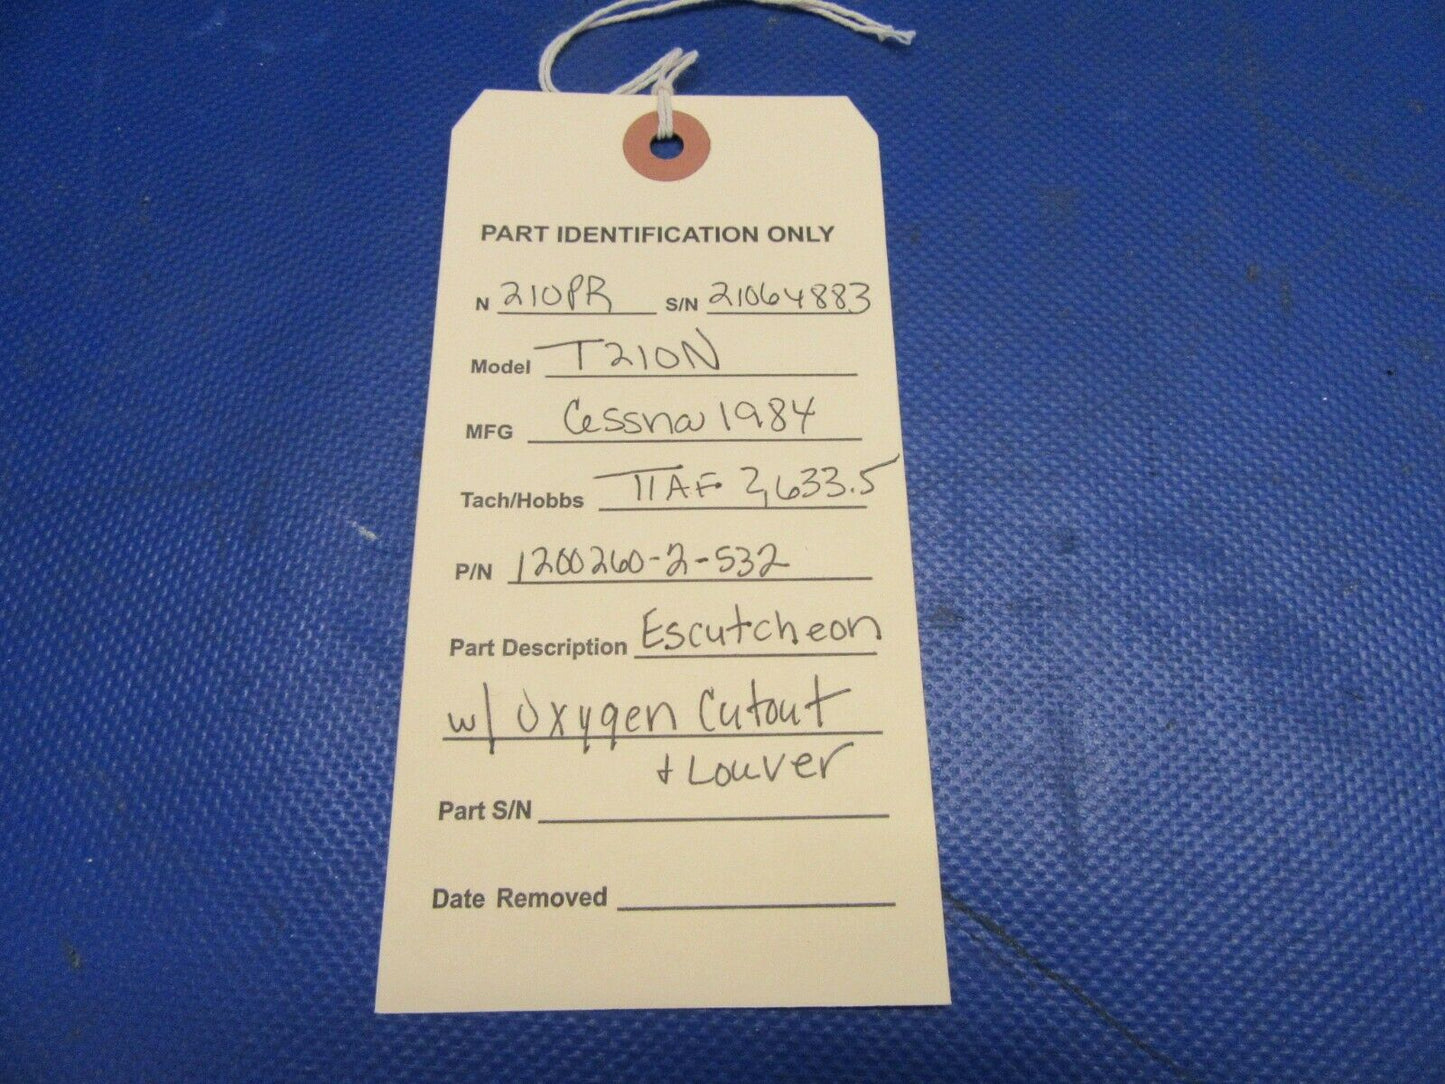 PART IDENTIFICATION ONLY
N 210PR S/N 21064883
Model T210N
MFG Cessna 1984
Tach/Hobbs TTAF 2,633.5
P/N 1200260-2-532
Part Description Escutcheon
w/ Oxygen Cutout
+ Louver
Part S/N
Date Removed